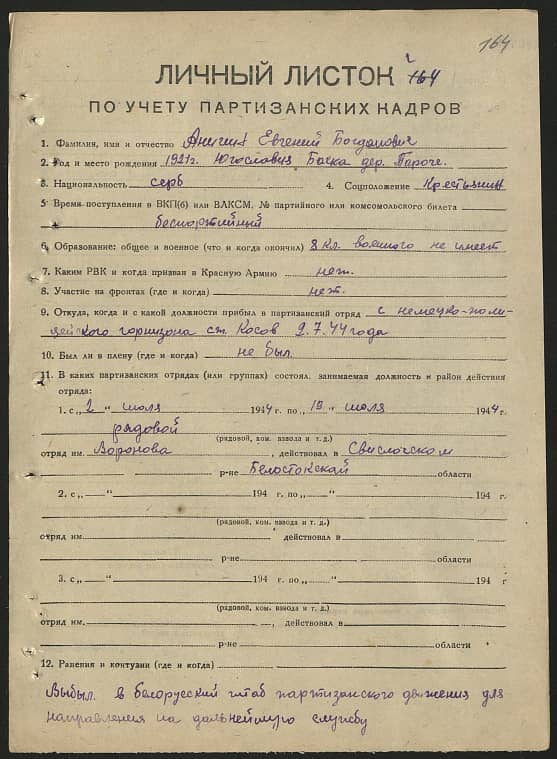 164
ЛИЧНЫЙ ЛИСТОК 164
ПО УЧЕТУ ПАРТИЗАНСКИХ КАДРОВ
1. Фамилия, имя и отчество Евгений Богданович
2. Год и место рождения 1921г. Югославия Бачка дер. Пароге.
3. Национальность серб 4. Соцположение Крестьянин
5. Время поступления в ВКП(б) или ВЛКСМ, № партийного или комсомольского билета
беспартийный
6. Образование: общее и военное (что и когда окончил) 8 кл. военного не имеет
7. Каким РВК и когда призван в Красную Армию нет.
8. Участие на фронтах (где и когда) нет.
9. Откуда, когда и с какой должности прибыл в партизанский отряд с немецко-поли-
цейского гарнизона ст. Косов 2.7.44 года
10. Был ли в плену (где и когда) не был.
11. В каких партизанских отрядах (или группах) состоял, занимаемая должность и район действия
отряда:
1. с „2 " июля 1944 г. по „15 " июля 1944 г.
рядовой
(рядовой, ком. взвода и т. д.)
отряд им. Воронова, действовал в Свислочском
р-не Белостокской области
2. с „ " 194 г. по „ " 194 г.
(рядовой, ком. взвода и т. д.)
отряд им. действовал в
р-не области
3. с „ " 194 г. по „ " 194 г
(рядовой, ком. взвода и т. д.)
отряд им. , действовал в
р-не области
12. Ранения и контузии (где и когда)
Выбыл. в белорусский штаб партизанского движения для
направления на дальнейшую службу